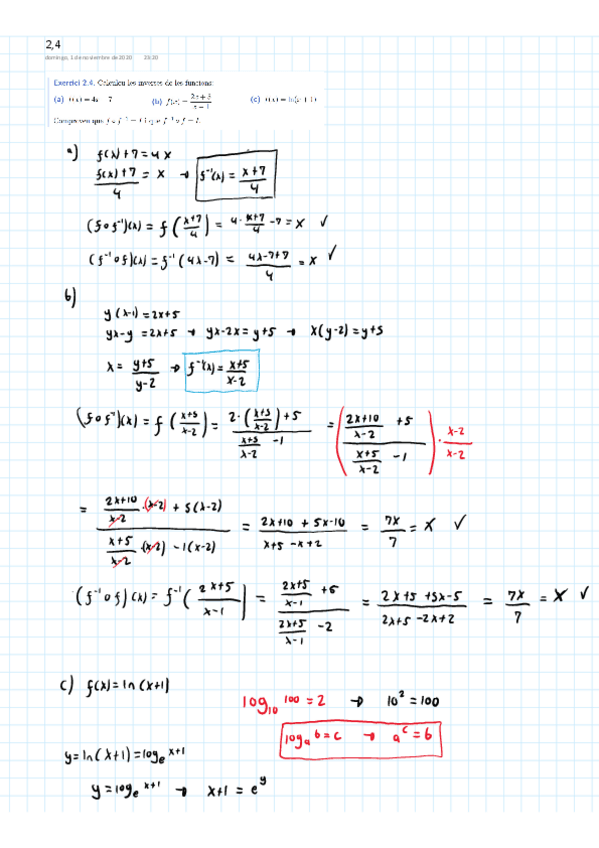 2,4
domingo, 1 de noviembre de 2020 20:20
Exercici 2.4. Calculeu les inverses de les funcions:
(a) f(x) = 4x − 7 (b) f(x) = (2x + 5)/(x − 1) (c) f(x) = ln(x + 1)
Comproveu que
a) f(x) + 7 = 4x
(f(x) + 7)/4 = x → f⁻¹(x) = (x+7)/4
(f∘f⁻¹)(x) = f((x+7)/4) = 4·(x+7)/4 − 7 = x ✓
(f⁻¹∘f)(x) = f⁻¹(4x−7) = (4x−7+7)/4 = x ✓
b)
y(x−1) = 2x+5
yx−y = 2x+5 → yx−2x = y+5 → x(y−2) = y+5
x = (y+5)/(y−2) → f⁻¹(x) = (x+5)/(x−2)
(f∘f⁻¹)(x) = f((x+5)/(x−2)) = (2·((x+5)/(x−2)) + 5)/((x+5)/(x−2) − 1) = (((2x+10)/(x−2) + 5)/((x+5)/(x−2) − 1)) · (x−2)/(x−2)
= ((2x+10)/(x−2)·(x−2) + 5(x−2))/((x+5)/(x−2)·(x−2) − 1(x−2)) = (2x+10 + 5x−10)/(x+5 −x+2) = 7x/7 = x ✓
(f⁻¹∘f)(x) = f⁻¹((2x+5)/(x−1)) = ((2x+5)/(x−1) + 5)/((2x+5)/(x−1) − 2) = (2x+5 +5x−5)/(2x+5 −2x+2) = 7x/7 = x ✓
c) f(x) = ln(x+1)
log₁₀ 100 = 2 → 10² = 100
logₐ b = c → aᶜ = b
y = ln(x+1) = logₑ x+1
y = logₑ x+1 → x+1 = e^y